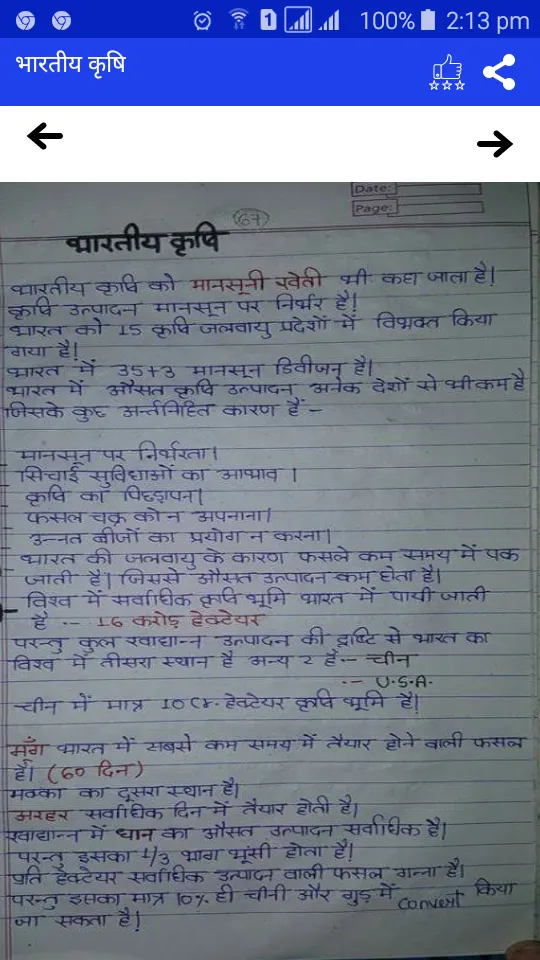 100% 2:13 pm
भारतीय कृषि
Date:
Page:
67
भारतीय कृषि
भारतीय कृषि को मानसूनी खेती भी कहा जाता है।
कृषि उत्पादन मानसून पर निर्भर है।
भारत को 15 कृषि जलवायु प्रदेशों में विभक्त किया
गया है।
भारत में 35+3 मानसून डिवीजन है।
भारत में औसत कृषि उत्पादन अनेक देशों से भी कम है
जिसके कुछ अर्न्तनिहित कारण हैं -
मानसून पर निर्भरता।
सिचाई सुविधाओं का आभाव।
कृषि का पिछड़ापन।
फसल चक्र को न अपनाना।
उन्नत बीजों का प्रयोग न करना।
भारत की जलवायु के कारण फसले कम समय में पक
जाती है। जिससे औसत उत्पादन कम होता है।
विश्व में सर्वाधिक कृषि भूमि भारत में पायी जाती
है -- 16 करोड़ हेक्टेयर
परन्तु कुल खाद्यान्न उत्पादन की दृष्टि से भारत का
विश्व में तीसरा स्थान है अन्य 2 है -- चीन
-- U.S.A.
चीन में मात्र 10 Cr. हेक्टेयर कृषि भूमि है।
मूँग भारत में सबसे कम समय में तैयार होने वाली फसल
है। (60 दिन)
मक्का का दूसरा स्थान है।
अरहर सर्वाधिक दिन में तैयार होती है।
खाद्यान्न में धान का औसत उत्पादन सर्वाधिक है।
परन्तु इसका 1/3 भाग भूंसी होता है।
प्रति हेक्टेयर सर्वाधिक उत्पादन वाली फसल गन्ना है।
परन्तु इसका मात्र 10% ही चीनी और गुड़ में convert किया
जा सकता है।